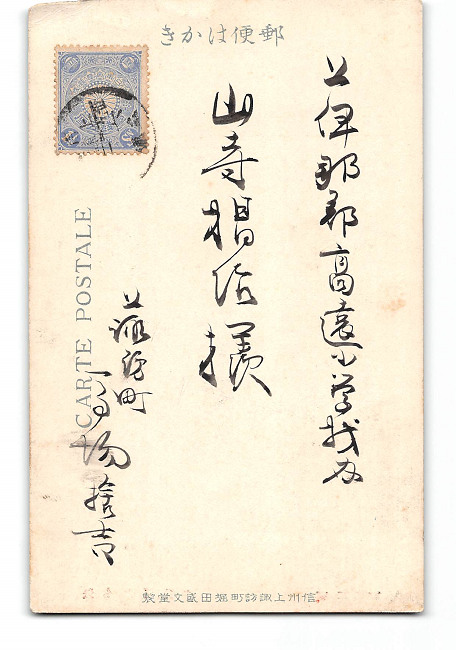 郵便はかき
上伊那郡高遠小学校内
山寺 治様
上諏訪町
馬場捨吉
CARTE POSTALE
信州上諏訪町堀田盛文堂製